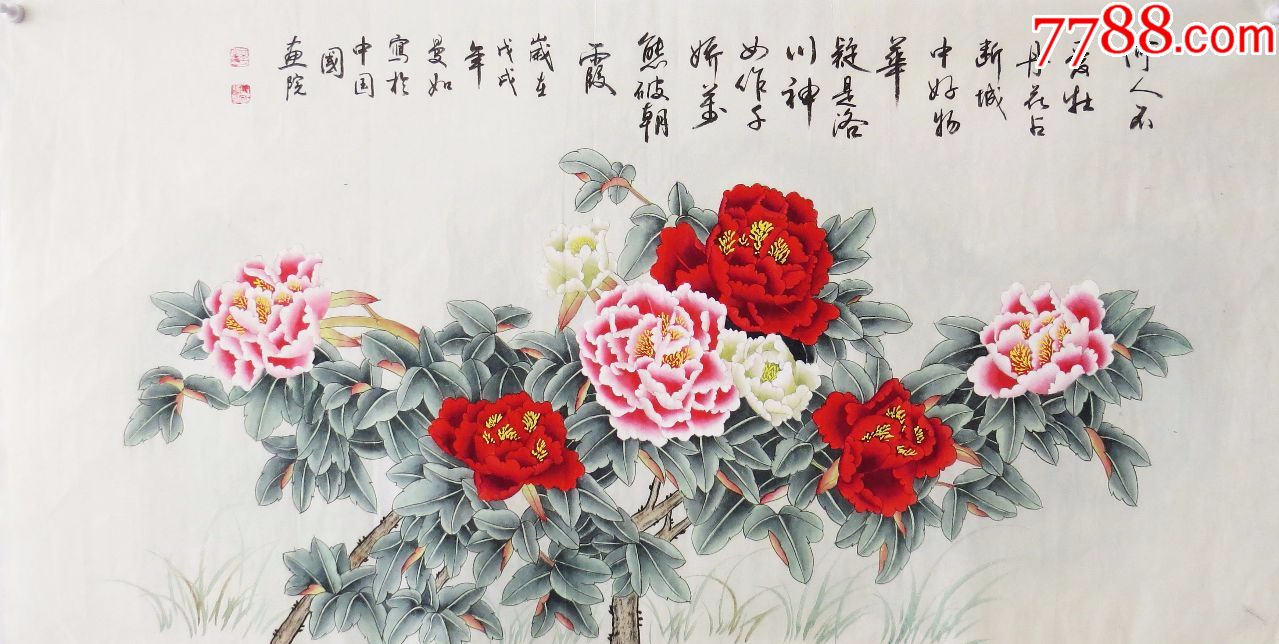 7788.com
何人不
愛牡
丹花占
断城
中好物
華
疑是洛
川神
女作千
娇萬
態破朝
霞
歲在
戊戌
年
曼如
寫於
中国
國
画院